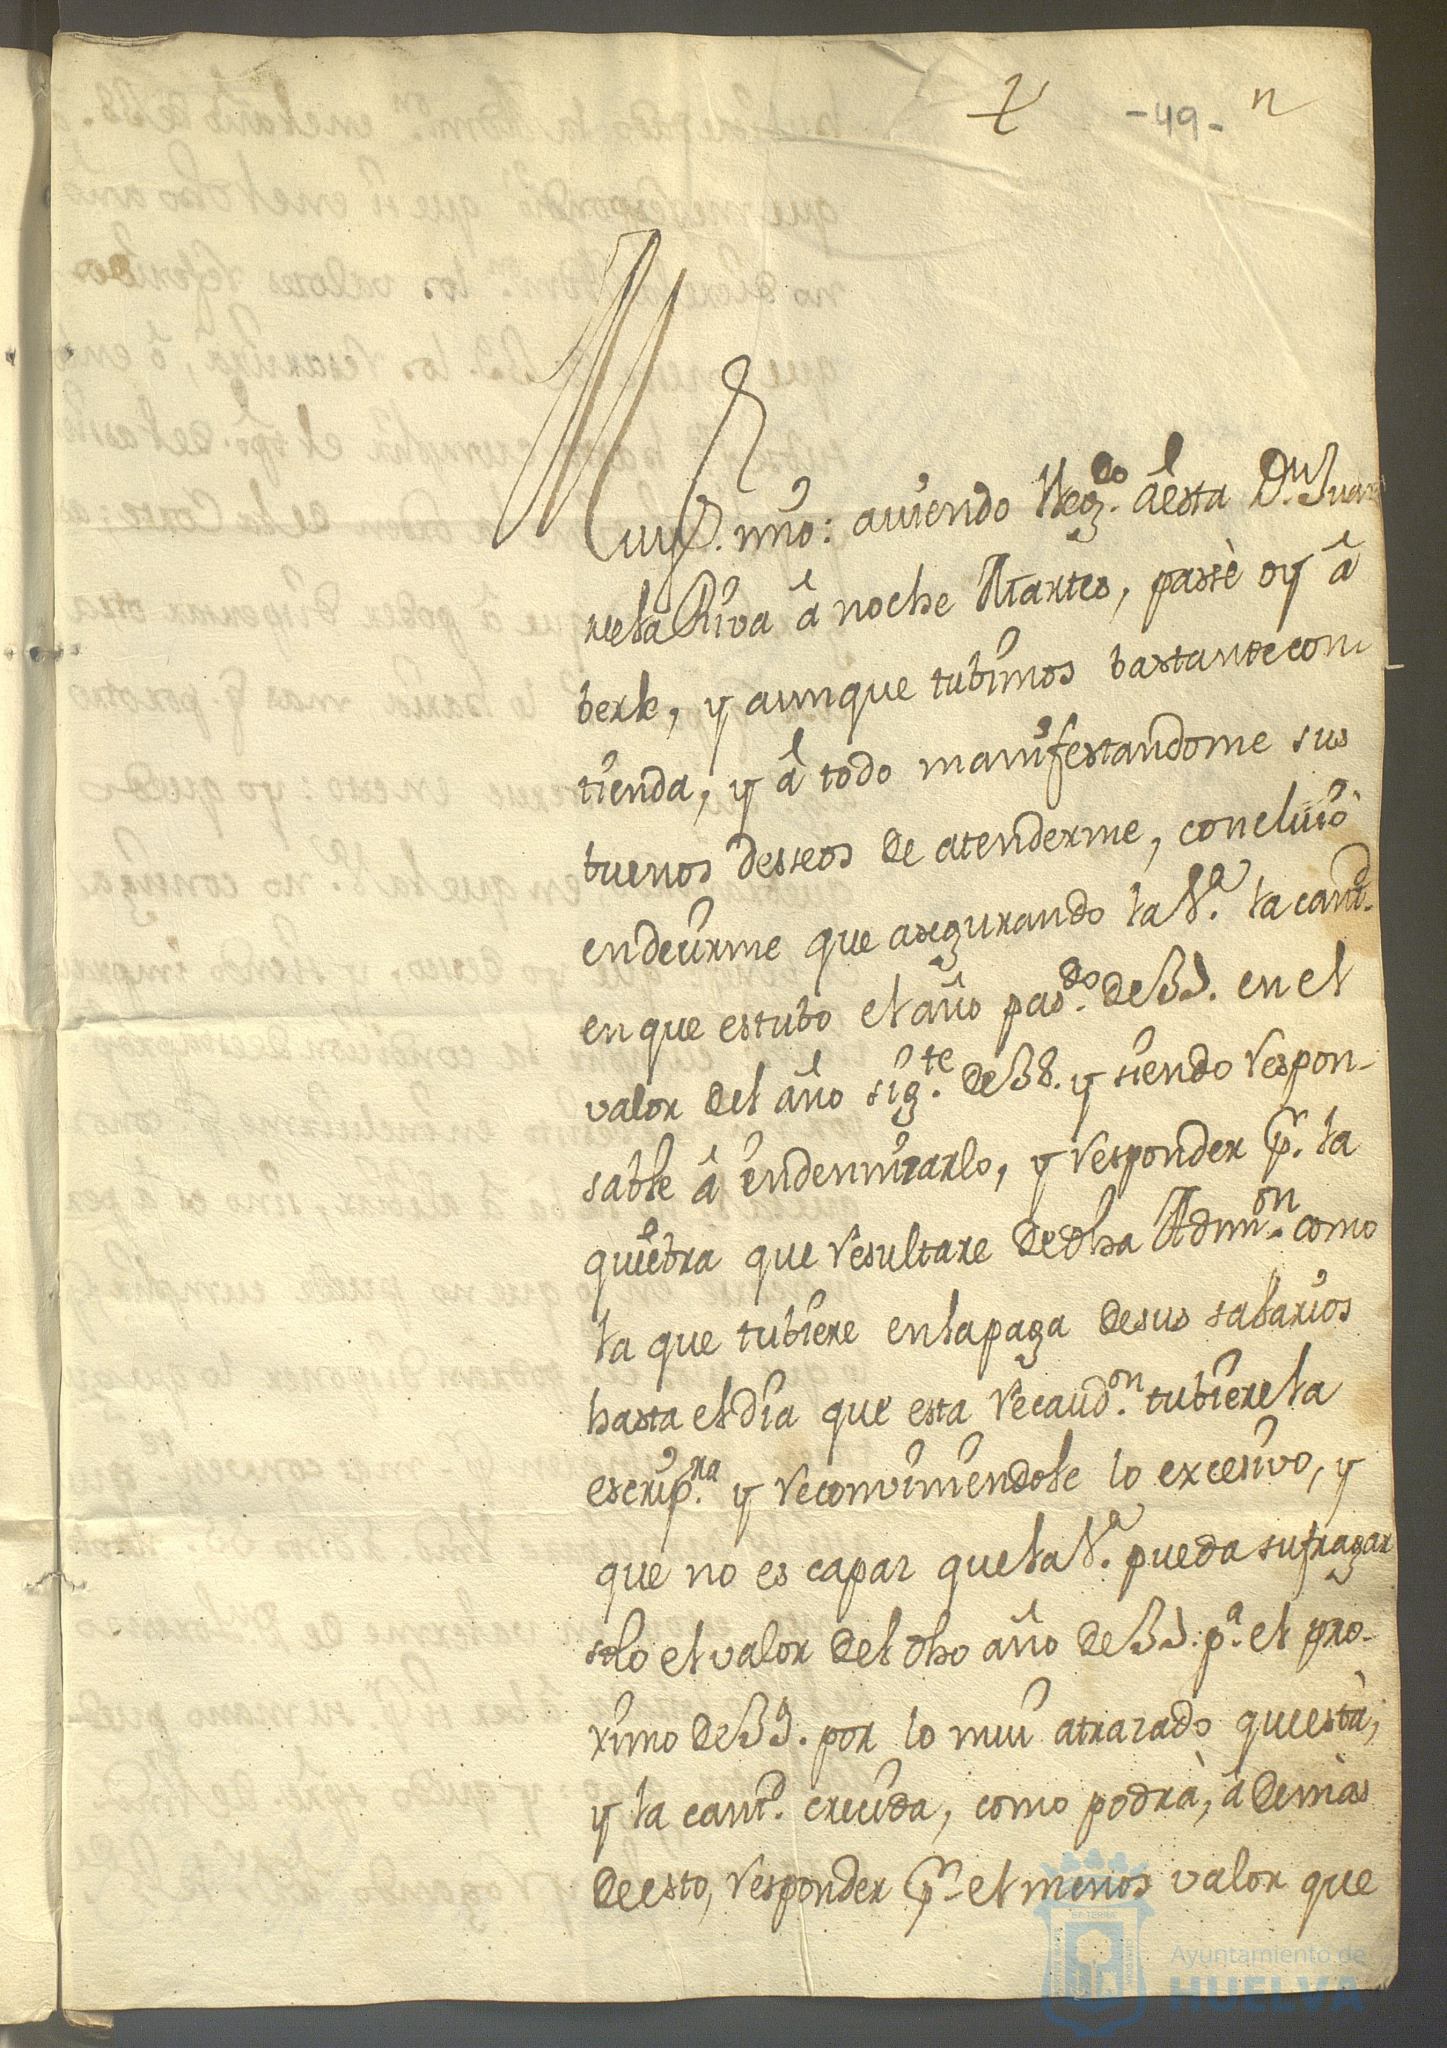 -49- n
Muy S.r mio: aviendo lleg.do â esta D.n Juan
de la Riva â noche Martes, passè oy â
berle, y aunque tubimos bastante con-
tienda, y â todo manifestandome sus
buenos desseos de atenderme, concluiò
en decirme que asegurando la V.a la cant.d
en que estubo el año pas.do de 37. en el
valor del año sig.te de 38. y siendo respon-
sable â yndemnizarlo, y responder p.r la
quiebra que resultare de dha Admi.on como
la que tubiere en la paga de sus salarios
hasta el dia que esta recaud.on tubiere la
escrip.ra y reconviniendole lo excesivo, y
que no es capaz que la V.a pueda sufragar
solo el valor del dho año de 37. p.a el pro-
ximo de 39. por lo mui atrazado que està,
y la cant.d crecida, como podrà, âdemàs
de esto, responder p.r el menos valor que
Ayuntamiento de
HUELVA